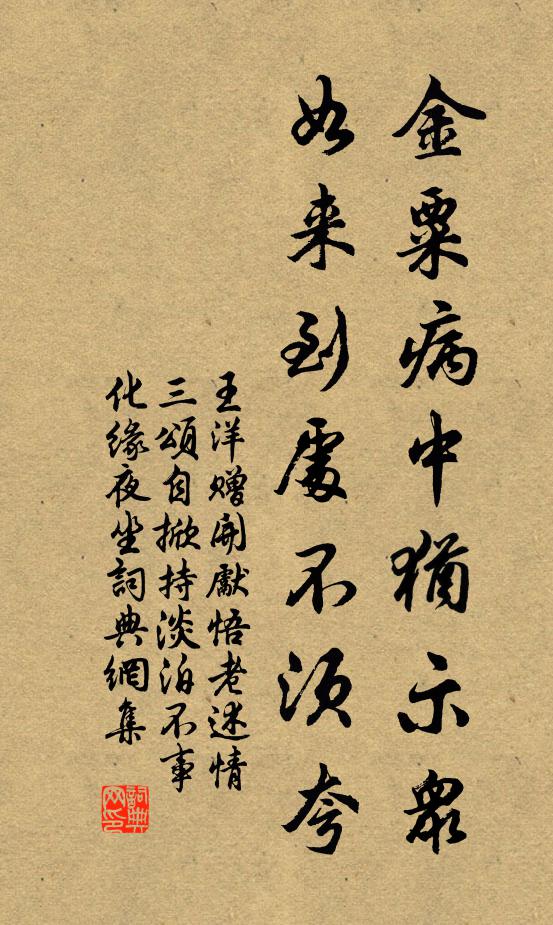 金粟病中猶示衆
如来到處不須夸
王洋贈開獻悟老述情
三頌自掀持淡泊不事
化緣夜坐詞典網集
詞典网印